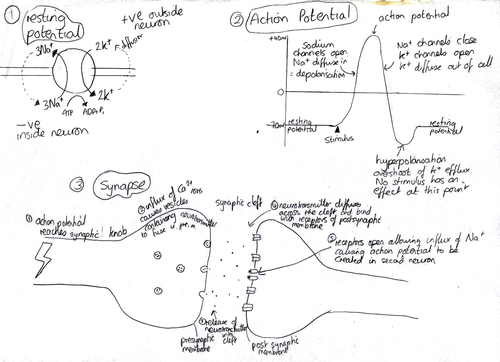 ① resting potential
+ve outside neuron
3Na⁺
2K⁺
3Na⁺
2K⁺
ATP
ADP+Pi
-ve
inside neuron
② Action Potential
action potential
+40mV
0
-70mV
Sodium
channels open
Na⁺ diffuse in
= depolarisation
Na⁺ channels close
K⁺ channels open
K⁺ diffuse out of cell
resting
potential
Stimulus
resting
potential
hyperpolarisation
overshoot of K⁺ efflux
No stimulus has an
effect at this point
③ Synapse
① action potential
reaches synaptic knob
② influx of Ca²⁺ ions
causes vesicles
containing neurotransmitter
to fuse w. pre.m
synaptic cleft
③ release of
neurotransmitter
in cleft
presynaptic
membrane
④ neurotransmitter diffuses
across the cleft and bind
with receptors of postsynaptic
membrane
⑤ receptors open allowing influx of Na⁺
causing action potential to be
created in second neuron
post synaptic
membrane